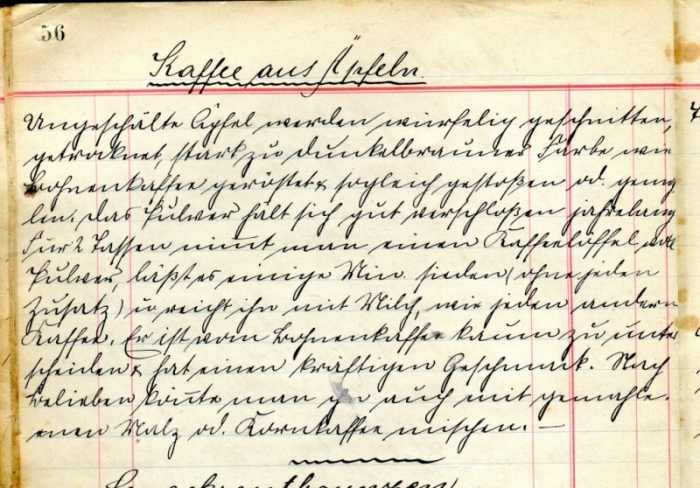 56
Kaffee aus Äpfeln.
Ungeschälte Äpfel werden würfelig geschnitten,
getrocknet, stark zu dunkelbrauner Farbe wie
Bohnenkaffee geröstet & sogleich gestoßen od. gema
len. Das Pulver hält sich gut verschloßen jahrelang
Für 2 Tassen nimt man einen Kaffeelöffel voll
Pulver, läßt es einige Min. sieden (ohne jeden
Zusatz) u reicht ihn mit Milch, wie jeden andern
Kaffee. Er ist vom Bohnenkaffee kaum zu unter
scheiden & hat einen kräftigen Geschmack. Nach
Belieben könte man ihn auch mit gemahle-
nen Malz od. Kornkaffee mischen. —